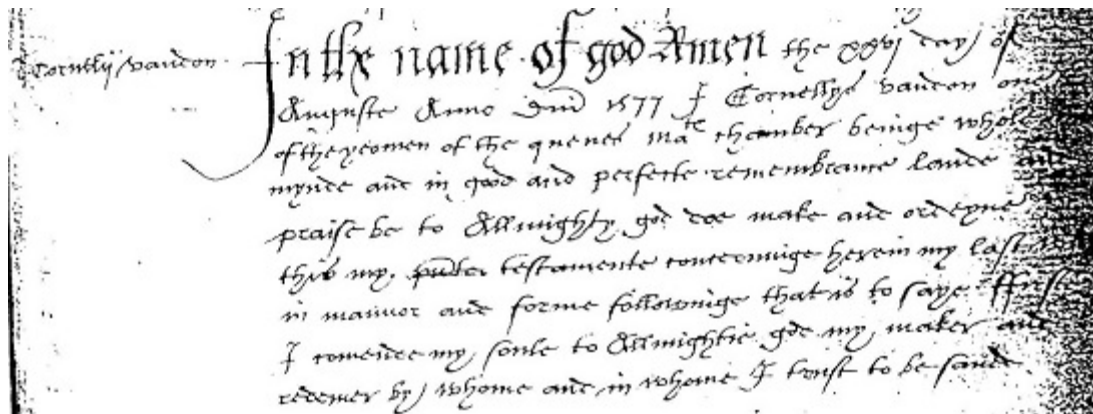 Cornelij vandon
In the name of god Amen the xxvj day of
Auguste Anno dni 1577 I Cornellys vandon on
of the yeomen of the quenes matie chamber beinge whole
mynde and in good and perfecte remembrance laude and
praise be to Allmighty god doe make and ordeyne
this my testamente concerninge herein my last
in manner and forme followinge that is to saye ffirst
I comende my soule to Allmightie gode my maker and
redemer by whome and in whome I trust to be saude